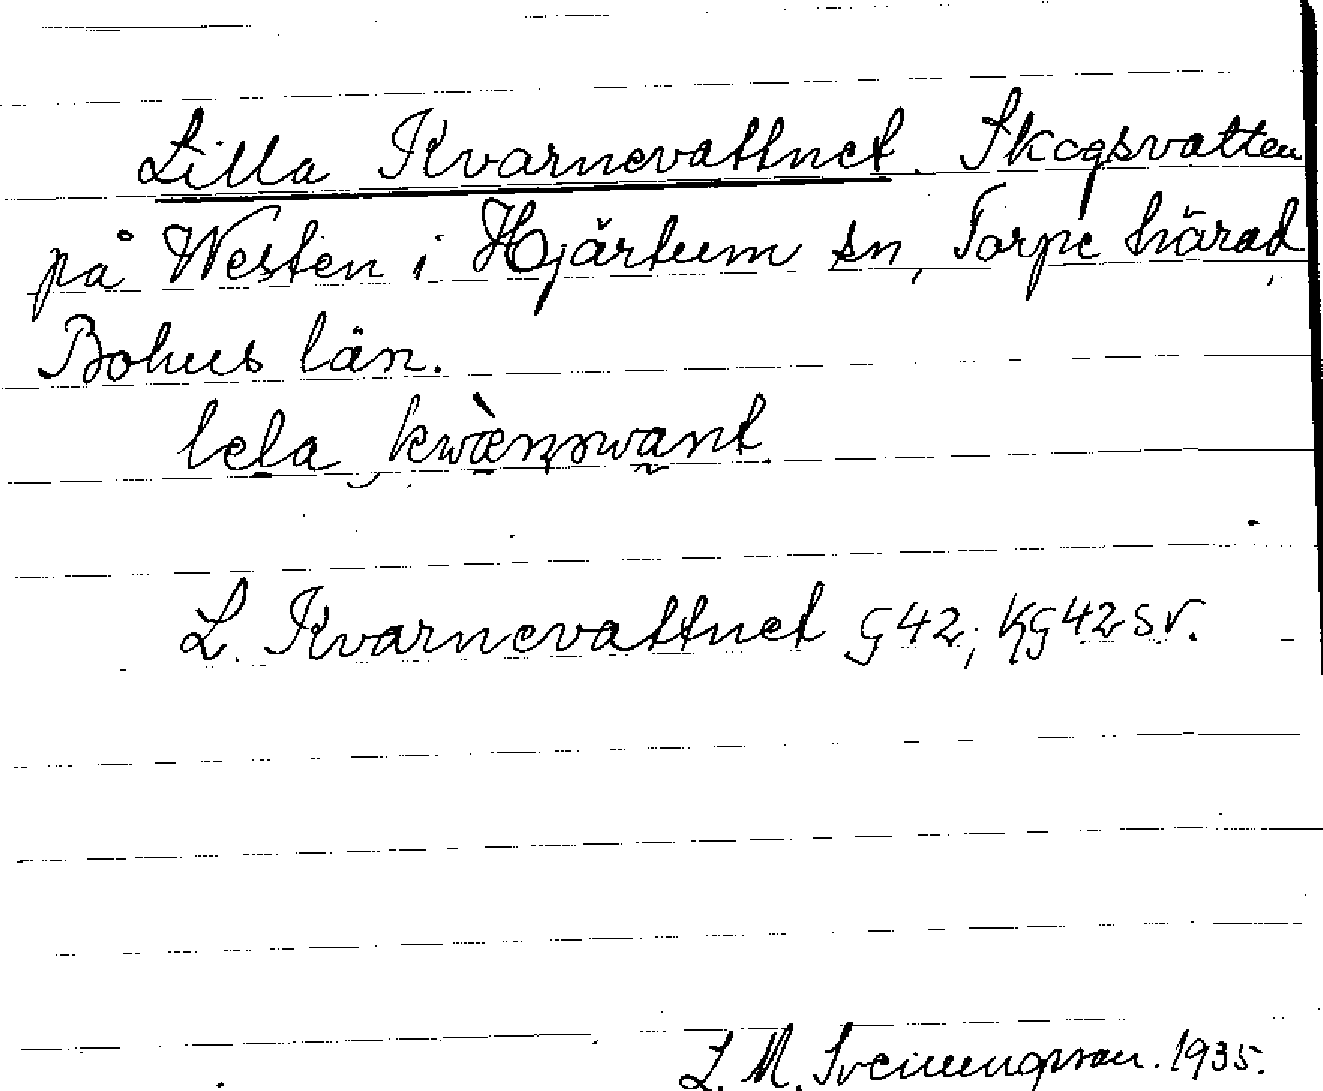 Lilla Kvarnevattnet. Skogsvatten
på Westen i Hjärtum sn, Torpe härad,
Bohus län.
lela kwæ̀nnwant
L. Kvarnevattnet G42; KG42SV.
L. M. Svenungsson. 1935.